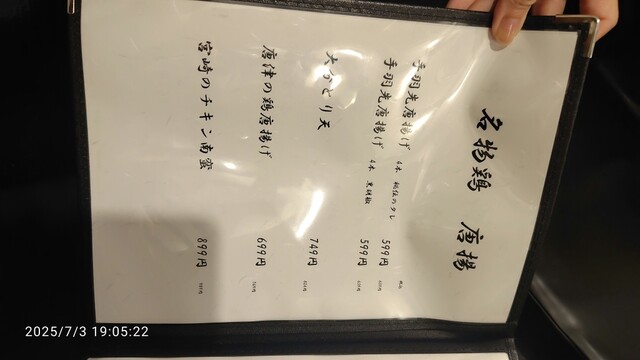 名物鶏 唐揚
税込
手羽先唐揚げ 4本 秘伝のタレ 599円
手羽先唐揚げ 4本 黒胡椒 599円
大分とり天 749円
唐津の鶏唐揚げ 699円
宮崎のチキン南蛮 899円
2025/7/3 19:05:22